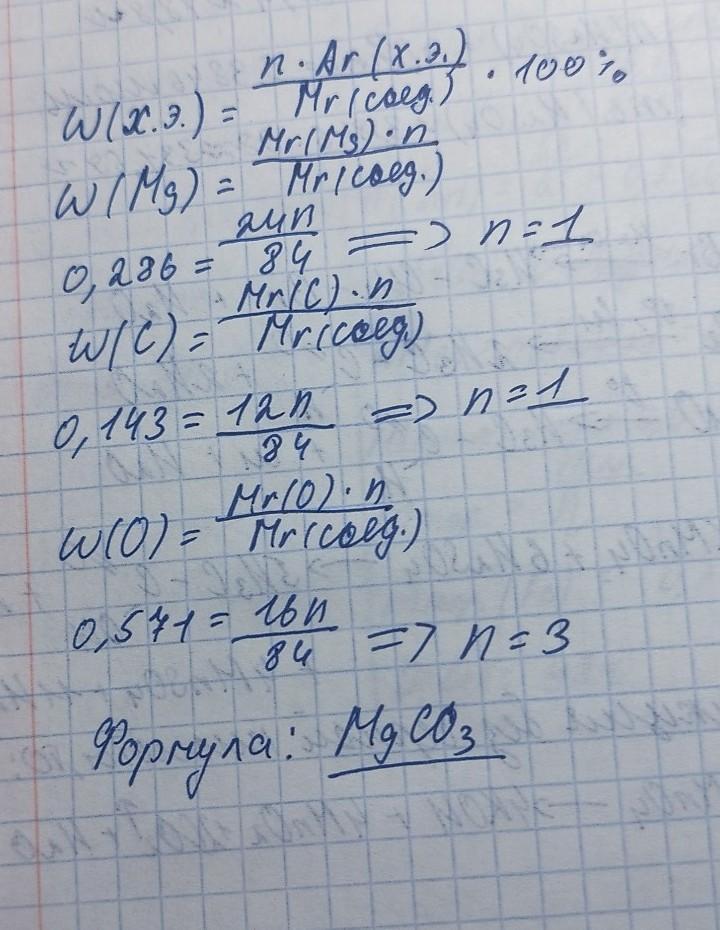 W(х.э.) = n · Ar(х.э.) / Mr(соед.) · 100%
W(Mg) = Mr(Mg) · n / Mr(соед.)
0,286 = 24n / 84 => n = 1
W(C) = Mr(C) · n / Mr(соед.)
0,143 = 12n / 84 => n = 1
W(O) = Mr(O) · n / Mr(соед.)
0,571 = 16n / 84 => n = 3
Формула: MgCO₃